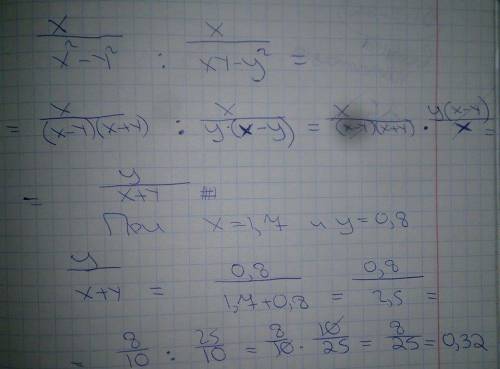 x/(x²-y²) : x/(xy-y²) =
= x/((x-y)(x+y)) : x/(y·(x-y)) = x/((x-y)(x+y)) · y(x-y)/x =
= y/(x+y)
При x=1,7 и y=0,8
y/(x+y) = 0,8/(1,7+0,8) = 0,8/2,5 =
= 8/10 : 25/10 = 8/10 · 10/25 = 8/25 = 0,32